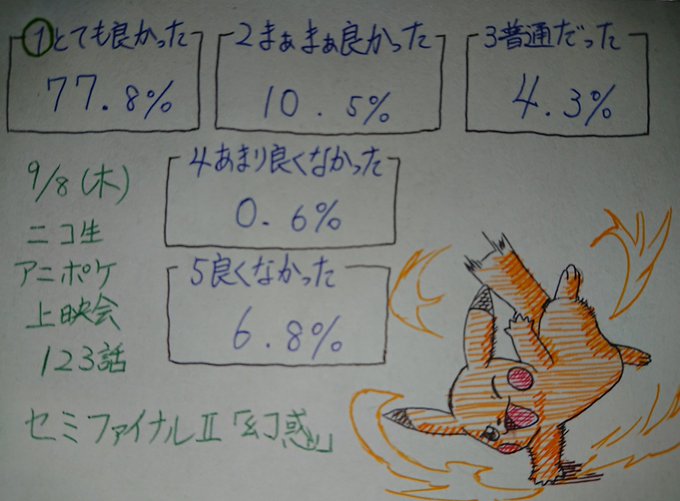 ①とても良かった
77.8%
2まぁまぁ良かった
10.5%
3普通だった
4.3%
4あまり良くなかった
0.6%
5良くなかった
6.8%
9/8(木)
ニコ生
アニポケ
上映会
123話
セミファイナルⅡ「幻惑」